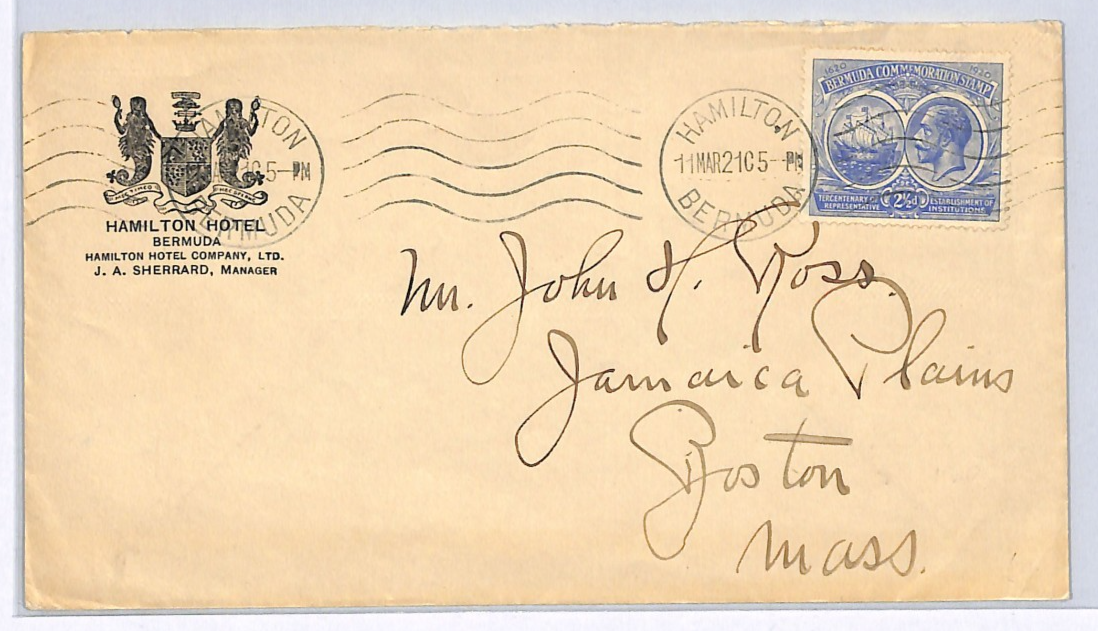 HAMILTON
5-PM
BERMUDA
HAMILTON HOTEL
BERMUDA
HAMILTON HOTEL COMPANY, LTD.
J. A. SHERRARD, MANAGER
HAMILTON
11MAR21C5-PM
BERMUDA
1620 1920
BERMUDA COMMEMORATION STAMP
TERCENTENARY OF REPRESENTATIVE
2½d
ESTABLISHMENT OF INSTITUTIONS
Mr. John H. Ross.
Jamaica Plains
Boston
Mass.